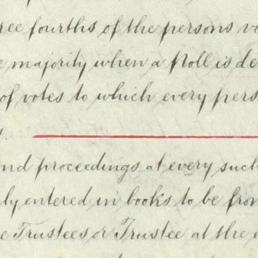 ree fourths of the persons vo
e majority when a Poll is de
of votes to which every pers
nd proceedings at every such
ly entered in books to be from
e Trustees or Trustee at the e